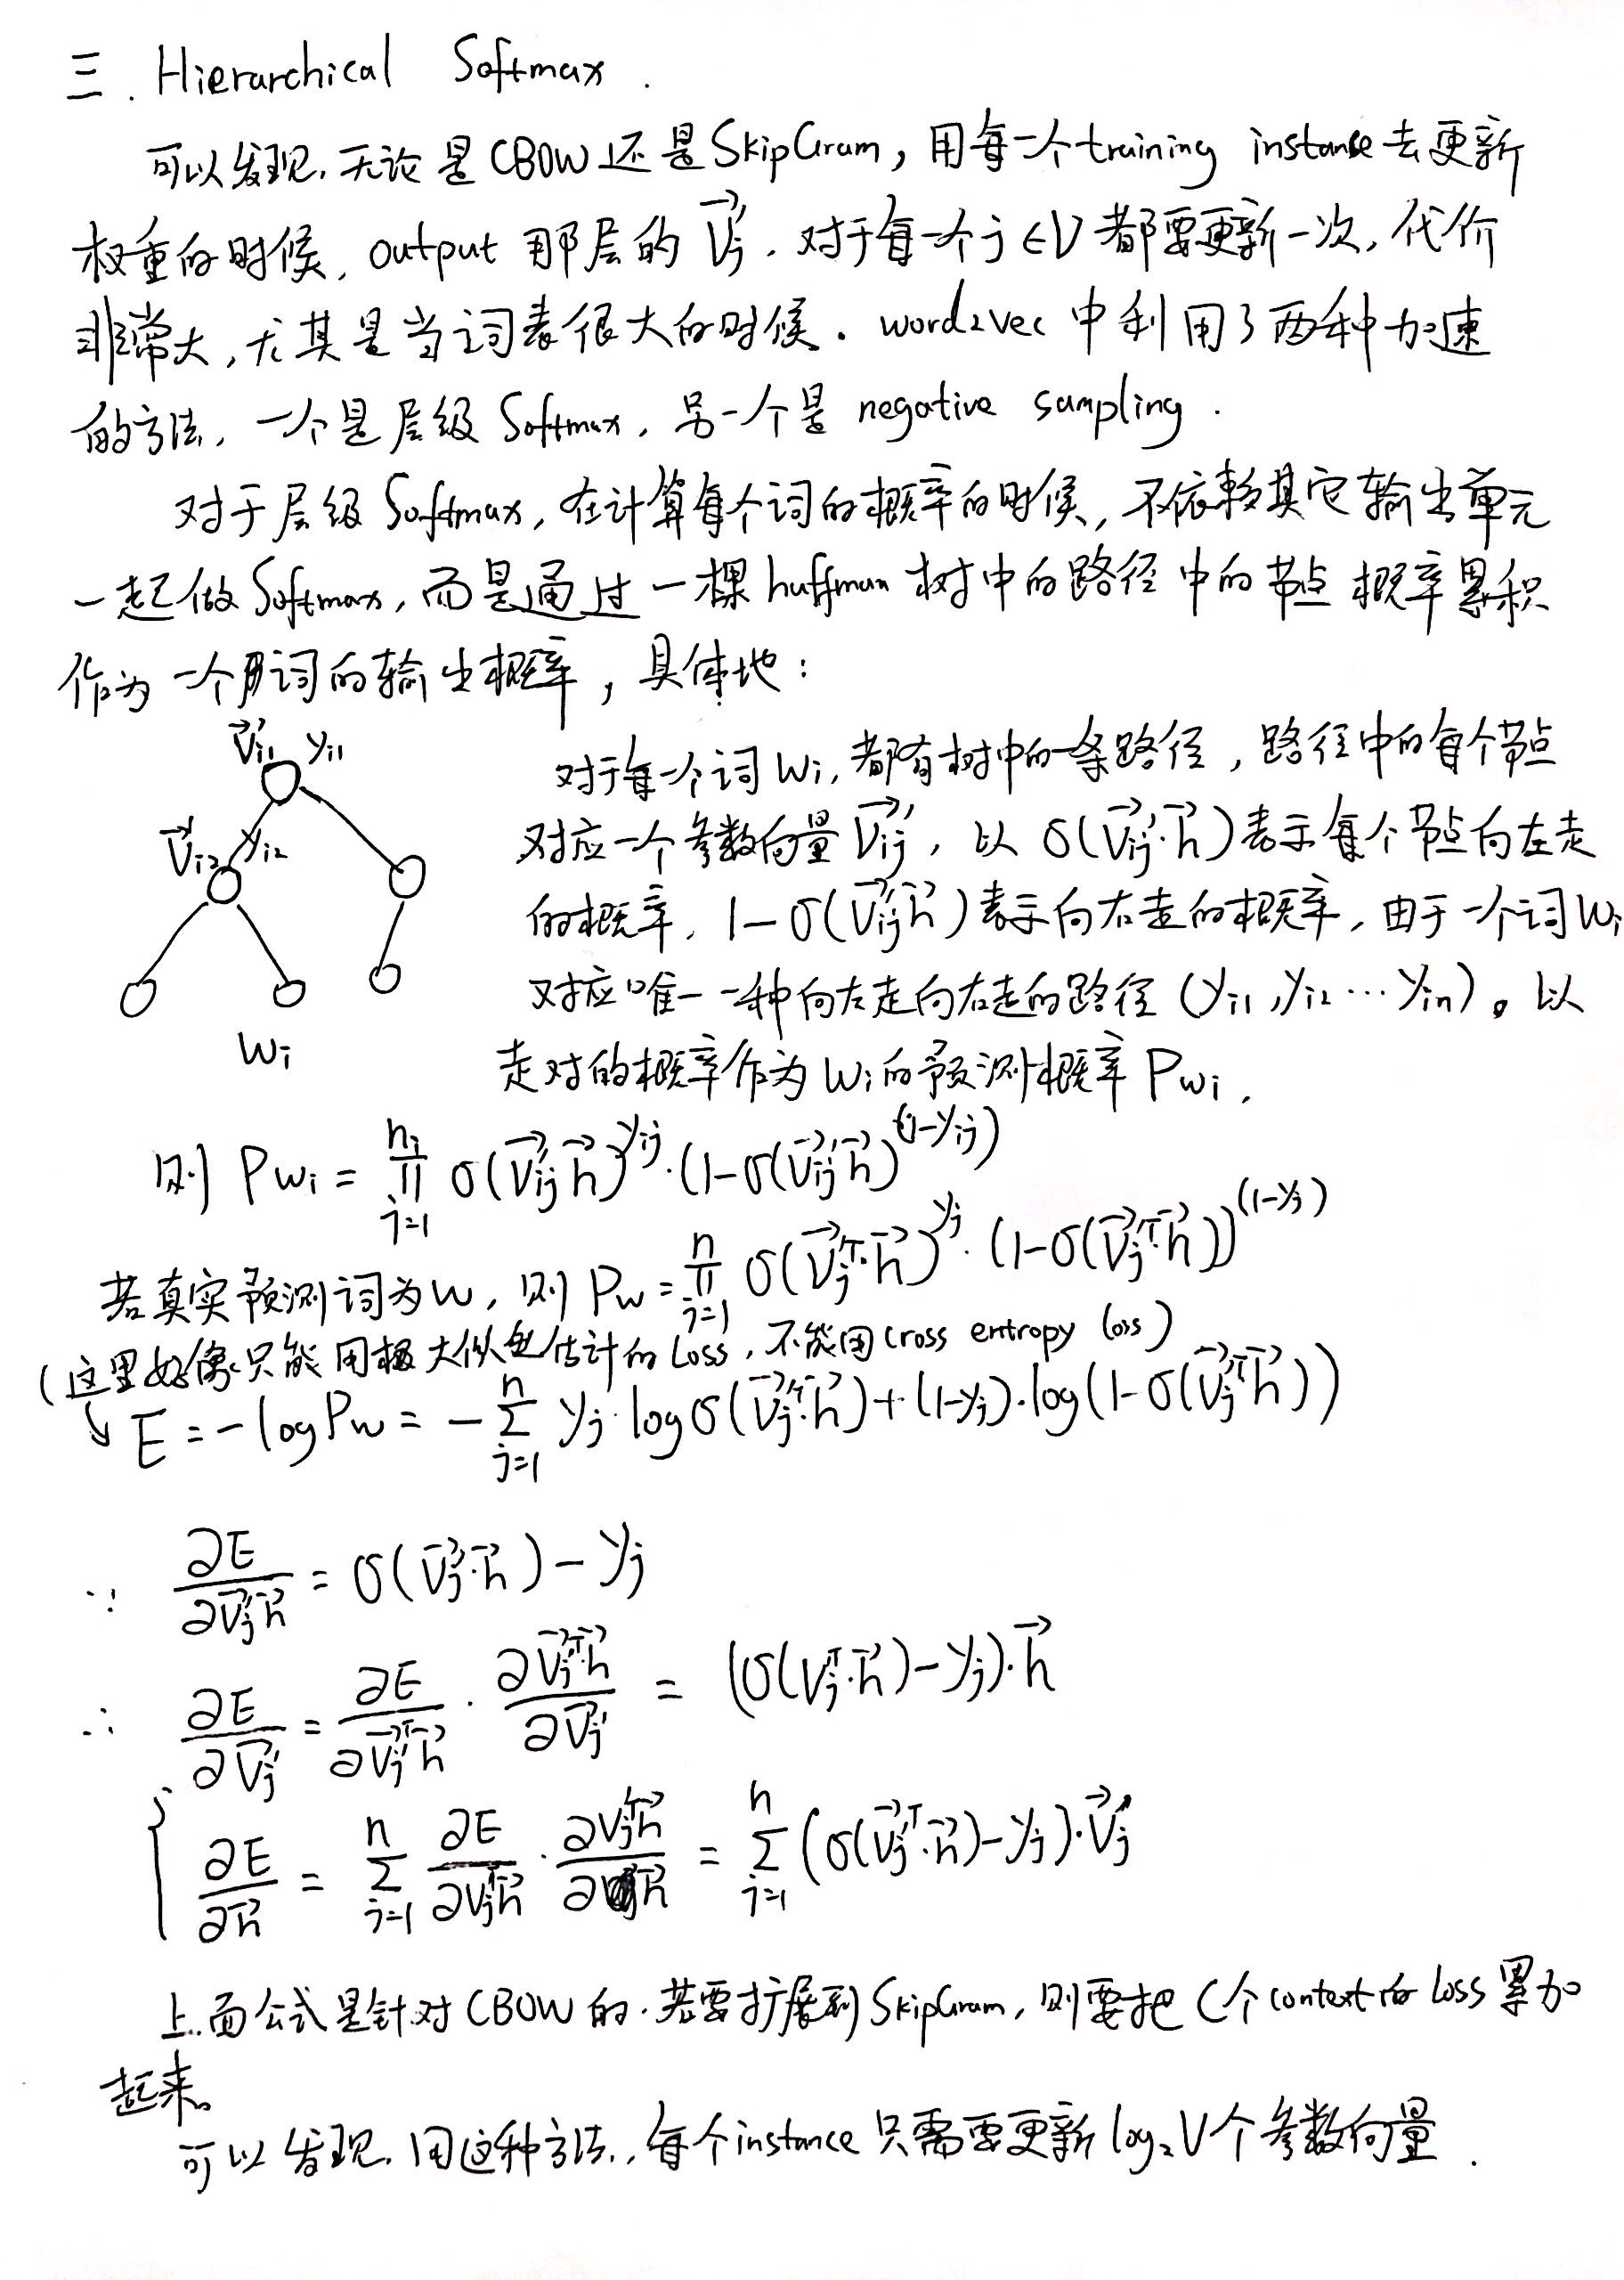 三. Hierarchical Softmax.
可以发现,无论是CBOW还是SkipGram,用每一个training instance去更新
权重的时候,output那层的 \vec{V}'_j,对于每一个j∈V都要更新一次,代价
非常大,尤其是当词表很大的时候.word2vec中利用了两种加速
的方法,一个是层级Softmax,另一个是negative sampling.
对于层级Softmax,在计算每个词的概率的时候,不依赖其它输出单元
一起做Softmax,而是通过一棵huffman树中的路径中的节点概率累积
作为一个词的输出概率,具体地:
\vec{V}'_{i1} y_{i1}
\vec{V}'_{i2} y_{i2}
w_i
对于每一个词w_i,都有树中的一条路径,路径中的每个节点
对应一个参数向量\vec{V}'_{ij},以σ(\vec{V}'_{ij}·\vec{h})表示每个节点向左走
的概率,1-σ(\vec{V}'_{ij}\vec{h})表示向右走的概率,由于一个词w_i
对应唯一一种向左走向右走的路径(y_{i1},y_{i2}…y_{in})。以
走对的概率作为w_i的预测概率P_{wi}.
则 P_{wi} = \prod_{j=1}^{n_i} σ(\vec{V}'_{ij}\vec{h})^{y_{ij}}·(1-σ(\vec{V}'_{ij}\vec{h})^{(1-y_{ij})}
若真实预测词为w,则 P_w = \prod_{j=1}^{n} σ(\vec{V}'^T_j·\vec{h})^{y_j}·(1-σ(\vec{V}'^T_j·\vec{h}))^{(1-y_j)}
(这里好像只能用极大似然估计的Loss,不能用cross entropy loss)
↳ E = -log P_w = -\sum_{j=1}^{n} y_j·logσ(\vec{V}'^T_j·\vec{h})+(1-y_j)·log(1-σ(\vec{V}'^T_j\vec{h}))
∵ \frac{∂E}{∂\vec{V}'_j\vec{h}} = σ(\vec{V}'_j·\vec{h})-y_j
∴ \frac{∂E}{∂\vec{V}'_j} = \frac{∂E}{∂\vec{V}'^T_j\vec{h}}·\frac{∂\vec{V}'^T_j\vec{h}}{∂\vec{V}'_j} = (σ(V^T_j·\vec{h})-y_j)·\vec{h}
\frac{∂E}{∂\vec{h}} = \sum_{j=1}^{n} \frac{∂E}{∂V^T_j\vec{h}}·\frac{∂V^T_j\vec{h}}{∂\vec{h}} = \sum_{j=1}^{n}(σ(\vec{V}'^T_j·\vec{h})-y_j)·\vec{V}'_j
上面公式是针对CBOW的.若要扩展到SkipGram,则要把C个context的loss累加
起来。
可以发现,用这种方法,每个instance只需要更新log₂V个参数向量.